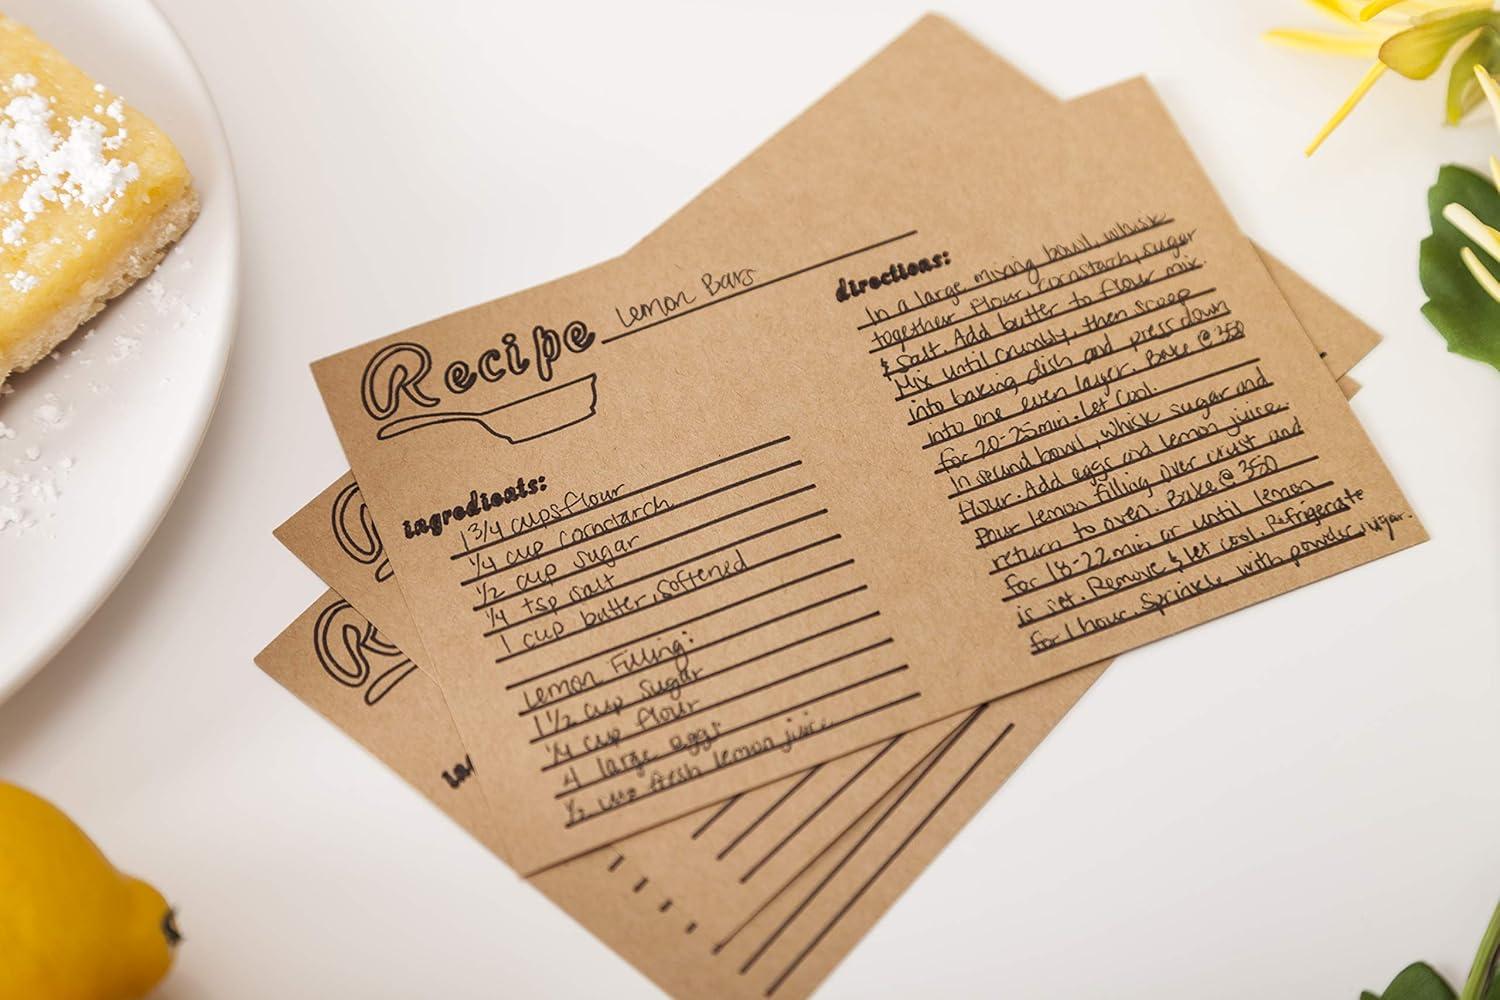 Recipe Lemon Bars
ingredients:
1 3/4 cups flour
1/4 cup cornstarch
1/2 cup sugar
1/4 tsp salt
1 cup butter, softened
Lemon Filling:
1 1/2 cup sugar
1/4 cup flour
4 large eggs
1/2 cup fresh lemon juice
directions:
In a large mixing bowl, whisk
together flour, cornstarch, sugar
& salt. Add butter to flour mix.
Mix until crumbly, then scoop
into baking dish and press down
into one even layer. Bake @ 350
for 20-25min. Let cool.
In second bowl, whisk sugar and
flour. Add eggs and lemon juice.
Pour lemon filling over crust and
return to oven. Bake @ 350
for 18-22min or until lemon
is set. Remove & let cool. Refrigerate
for 1 hour. Sprinkle with powder sugar.
R
Re
in